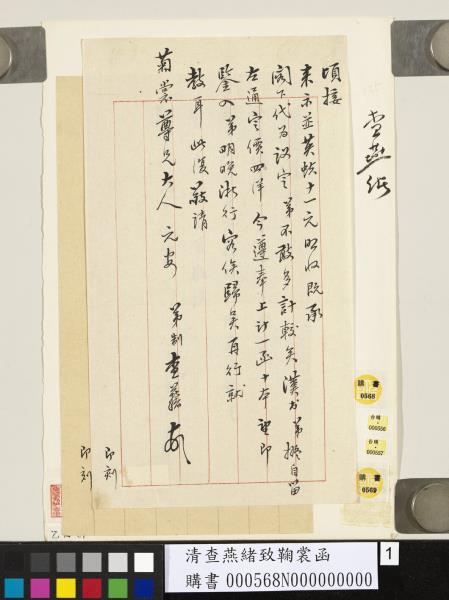 查燕緒
頃接
來示並英蚨十一元照收既承
閣下代為議定 弟不敢多計較矣漢書弟擬自留
左通定價四洋今遵奉上計一函十本望即
鑒入弟明晚浙行容俟歸吳再行就
教耳此復敬請
菊裳尊兄大人 元安 弟制查燕緒
印刻
印刻
購書
0568
台購
000556
台購
000557
購書
0569
清查燕緒致鞠裳函
購書 000568N000000000
1